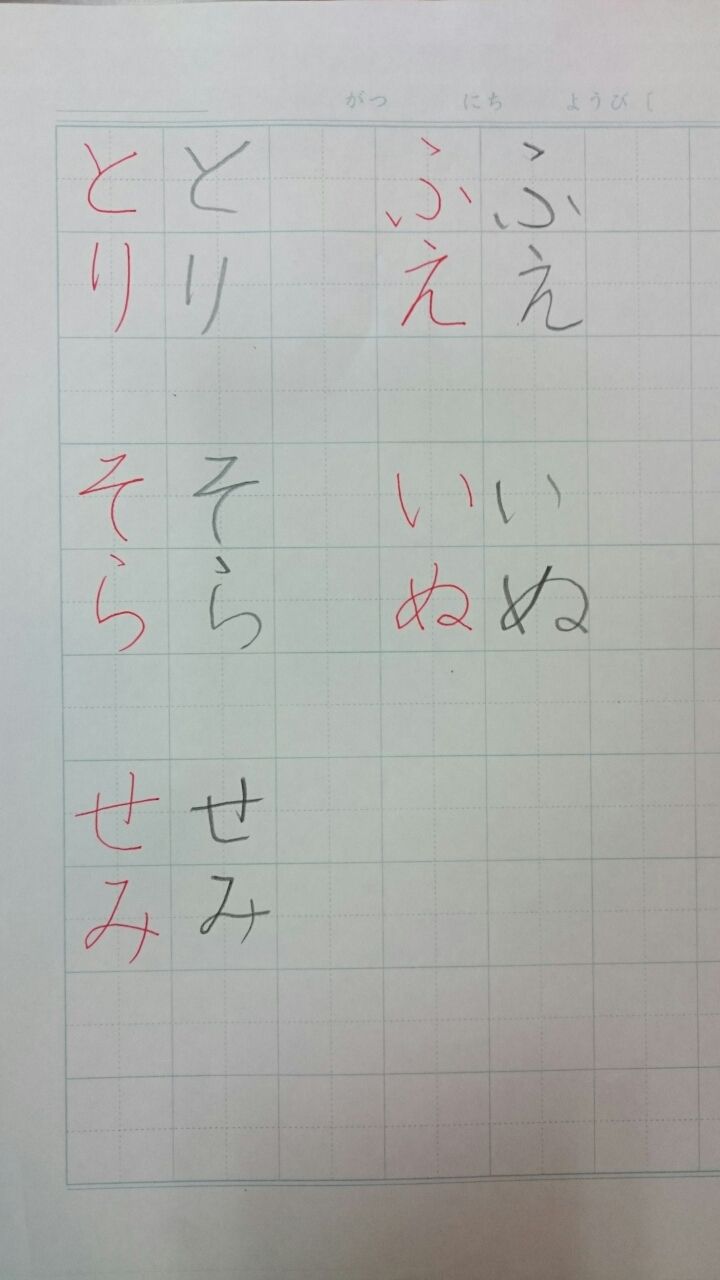 がつ にち ようび [
ふえ ふえ
いぬ いぬ
とり とり
そら そら
せみ せみ